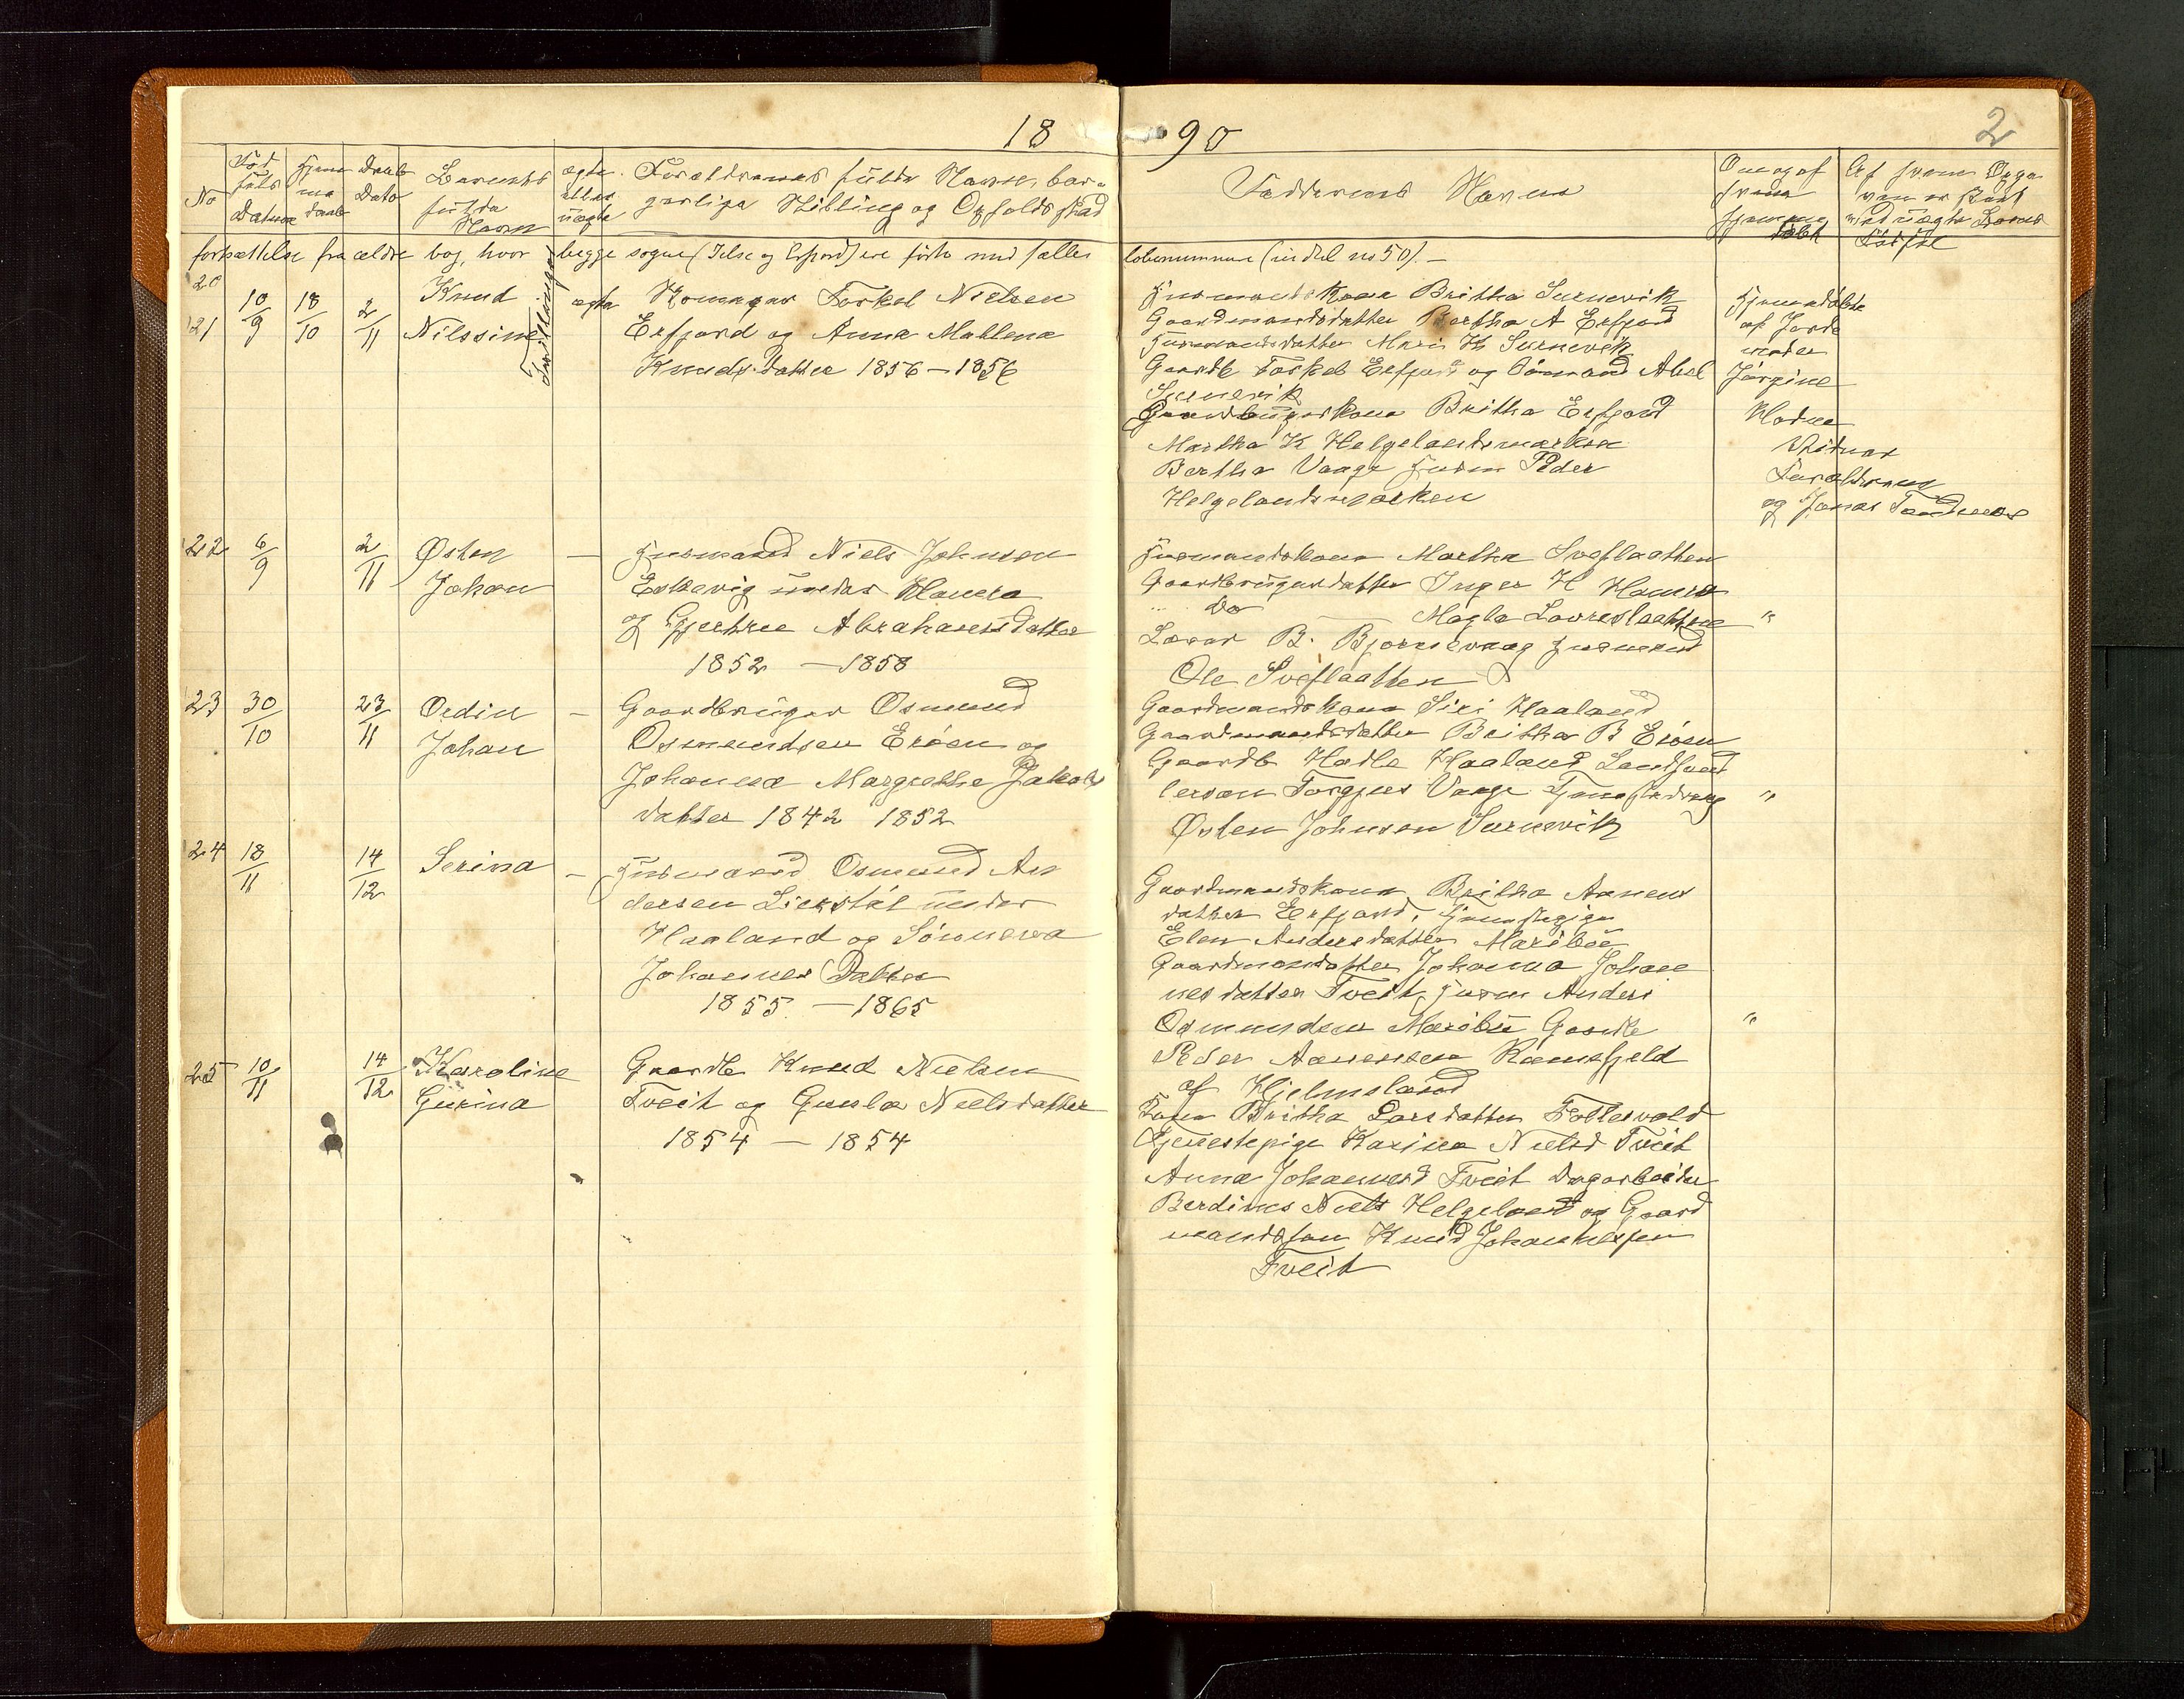 18 90
2
No
Födsels Datum
Hjemmedaab
Daab Dato
Barnets fulde Navn
ægte eller uægte
Forældrenes fulde Navne borgerlige Stilling og Opholdssted
Faddernes Navne
Om og af hvem hjemmedöbt
fortsættelse fra ældre bog, hvor begge sogne (Jelse og Erfjord) ere förte med fælles löbenummere (indtil no 50). —
20
21
10/9
18/10
2/11
Knud
Nilssine
Tvillinger
ægte
Torkel Nielsen
Erfjord og Anna Mallena
Knudsdatter 1856 – 1856
Husmandskone Britha Surnevik
Gaardmandsdatter Bertha A Erfjord
Husmandsdatter Mari K Surnevik
Gaardb Torkel Erfjord og Aamund Abel
Surnevik
Gaardbrugerkone Britha Erfjord
Martha K Helgelandsmarken
Bertha Vaage Husm Peder
Helgelandsmarken
Hjemmedöbte
af Jorde
moder
Jörgine
Vidner
Forældrene
og Jonas Tandness
22
6/9
2/11
Østen
Johan
—
Husmand Niels Johnsen
Eskevig under Hamra
og Gjertrue Abrahamsdatter
1852 – 1858
Husmandskone Martha Svoflaatten
Gaardbrugerdatter Inger H Hamra
Do — Magla Lovreslaatten "
Lærer B. Bjornevaag Husmand
Ole Svoflaatten
23
30/10
23/11
Oedin
Johan
—
Gaardbruger Osmund
Osmundsen Eröen og
Johanna Margrethe Jakobs
datter 1842 1852
Gaardmandskone Siri Haaland
Gaardmandsdatter Britha B Eröen
Gaardb Hadle Haaland
Torgjers Vaage Tjenestedreng "
Østen Johnsen Surnevik
24
18/11
14/12
Serina
—
Husmand Osmund An
dersen Lierstöl under
Haaland og Sönneva
Johannes Datter
1855. – 1865
Gaardmandskone Britha Aanens
datter Erfjord, Tjenestepige
Elen Andersdatter Mariböe
Gaardmandsdatter Johanna Johan
nes datter Tveit, Husm Anders
Osmundsen Maribu Gaardb
Peder Aanensen Ramsfjeld
af Hjelmeland
"
25
10/11
14/12
Karoline
Gurina
Gaardb Knud Nielsen
Tveit og Gunla Nielsdatter
1854 – 1854
Britha Larsdatter
Tjenestepige Karina Nielsd Tveit
Anna Johannesd Tveit dagarbeider
Berdines Niels Helgeland og Gaard
mandssøn Knud Johannessen
Tveit